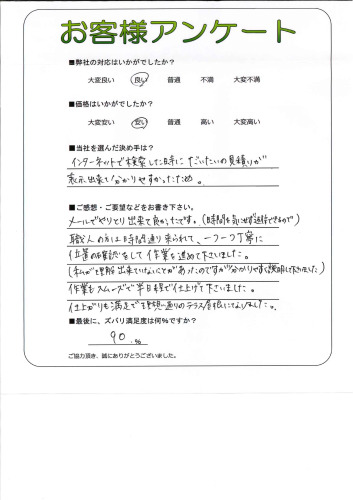 お客様アンケート
■弊社の対応はいかがでしたか?
大変良い 良い 普通 不満 大変不満
■価格はいかがでしたか?
大変安い 安い 普通 高い 大変高い
■当社を選んだ決め手は?
インターネットで検索した時に だいたいの見積りが
表示出来て分かりやすかったため。
■ご感想・ご要望などをお書き下さい。
メールでやりとり出来て良かったです。(時間を気にせず返信できるので)
職人の方は時間通り来られて、一つ一つ丁寧に
位置の確認をして作業を進めて下さいました。
(私が理解出来ていないことがあったのですが分かりやすく説明して下さいました)
作業もスムーズで半日程で仕上げて下さいました。
仕上がりも満足で理想通りのテラス屋根になりました。
■最後に、ズバリ満足度は何%ですか?
90 %
ご協力頂き、誠にありがとうございました。